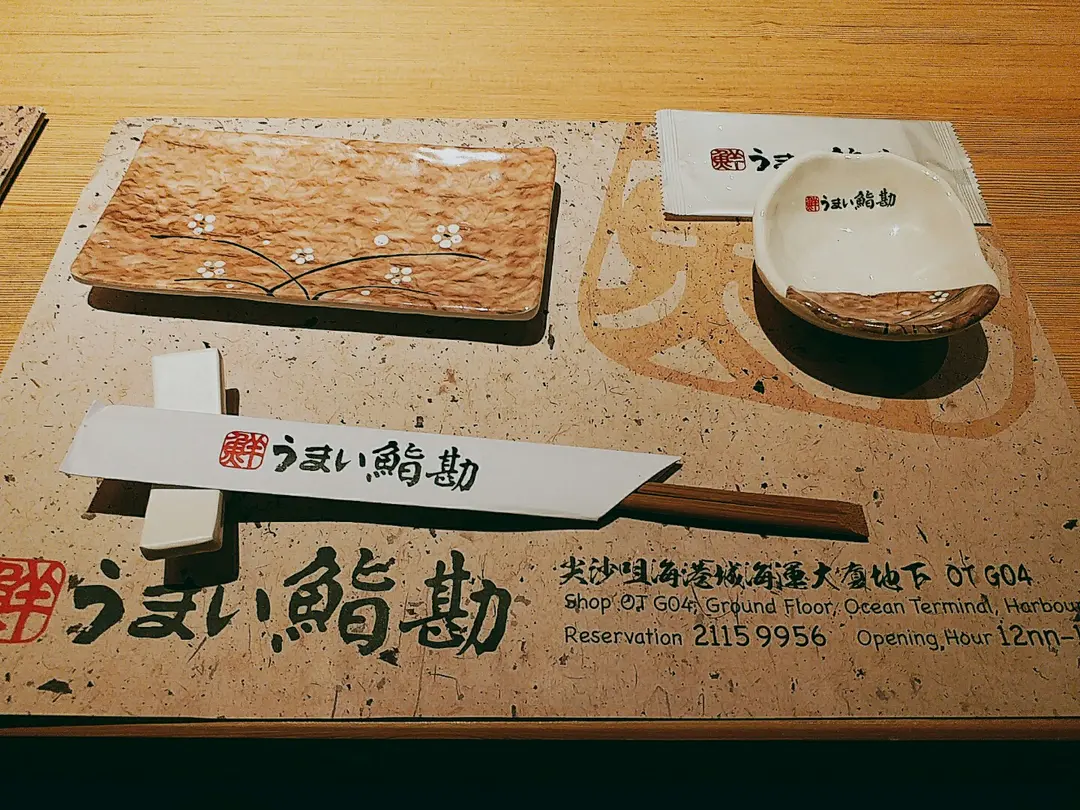 鮮 うま
鮮 うまい鮨勘
鮮 うまい鮨勘
鮮 うまい鮨勘
尖沙咀海港城海運大廈地下 OT G04
Shop OT G04, Ground Floor, Ocean Terminal, Harbou
Reservation 2115 9956 Opening Hour 12nn-